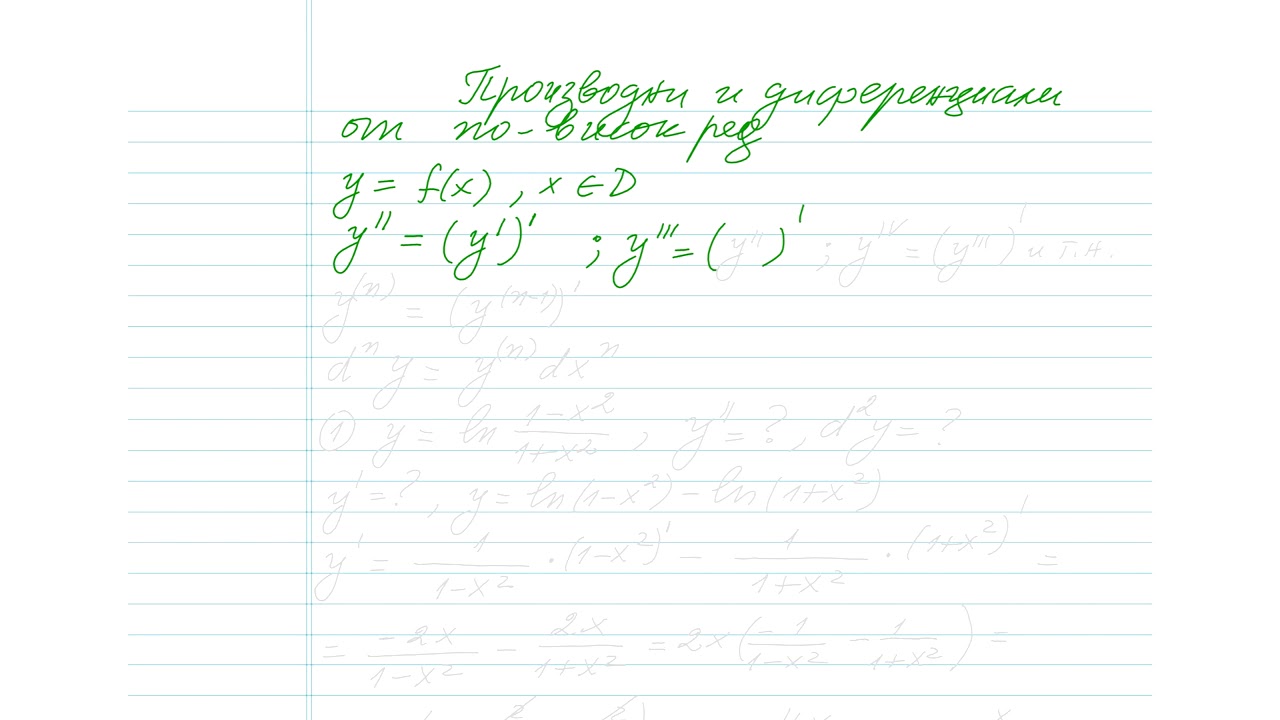 Производни и диференциали
от по-висок ред
y = f(x) , x ∈ D
y'' = (y')' ; y''' = (y'')' ; y^IV = (y''')' и т.н.
y^(n) = (y^(n-1))'
d^n y = y^(n) dx^n
(1) y = ln (1-x^2)/(1+x^2) , y'' = ? , d^2y = ?
y' = ? , y = ln(1-x^2) - ln(1+x^2)
y' = 1/(1-x^2) · (1-x^2)' - 1/(1+x^2) · (1+x^2)' =
= (-2x)/(1-x^2) - (2x)/(1+x^2) = 2x((-1)/(1-x^2) - 1/(1+x^2)) =